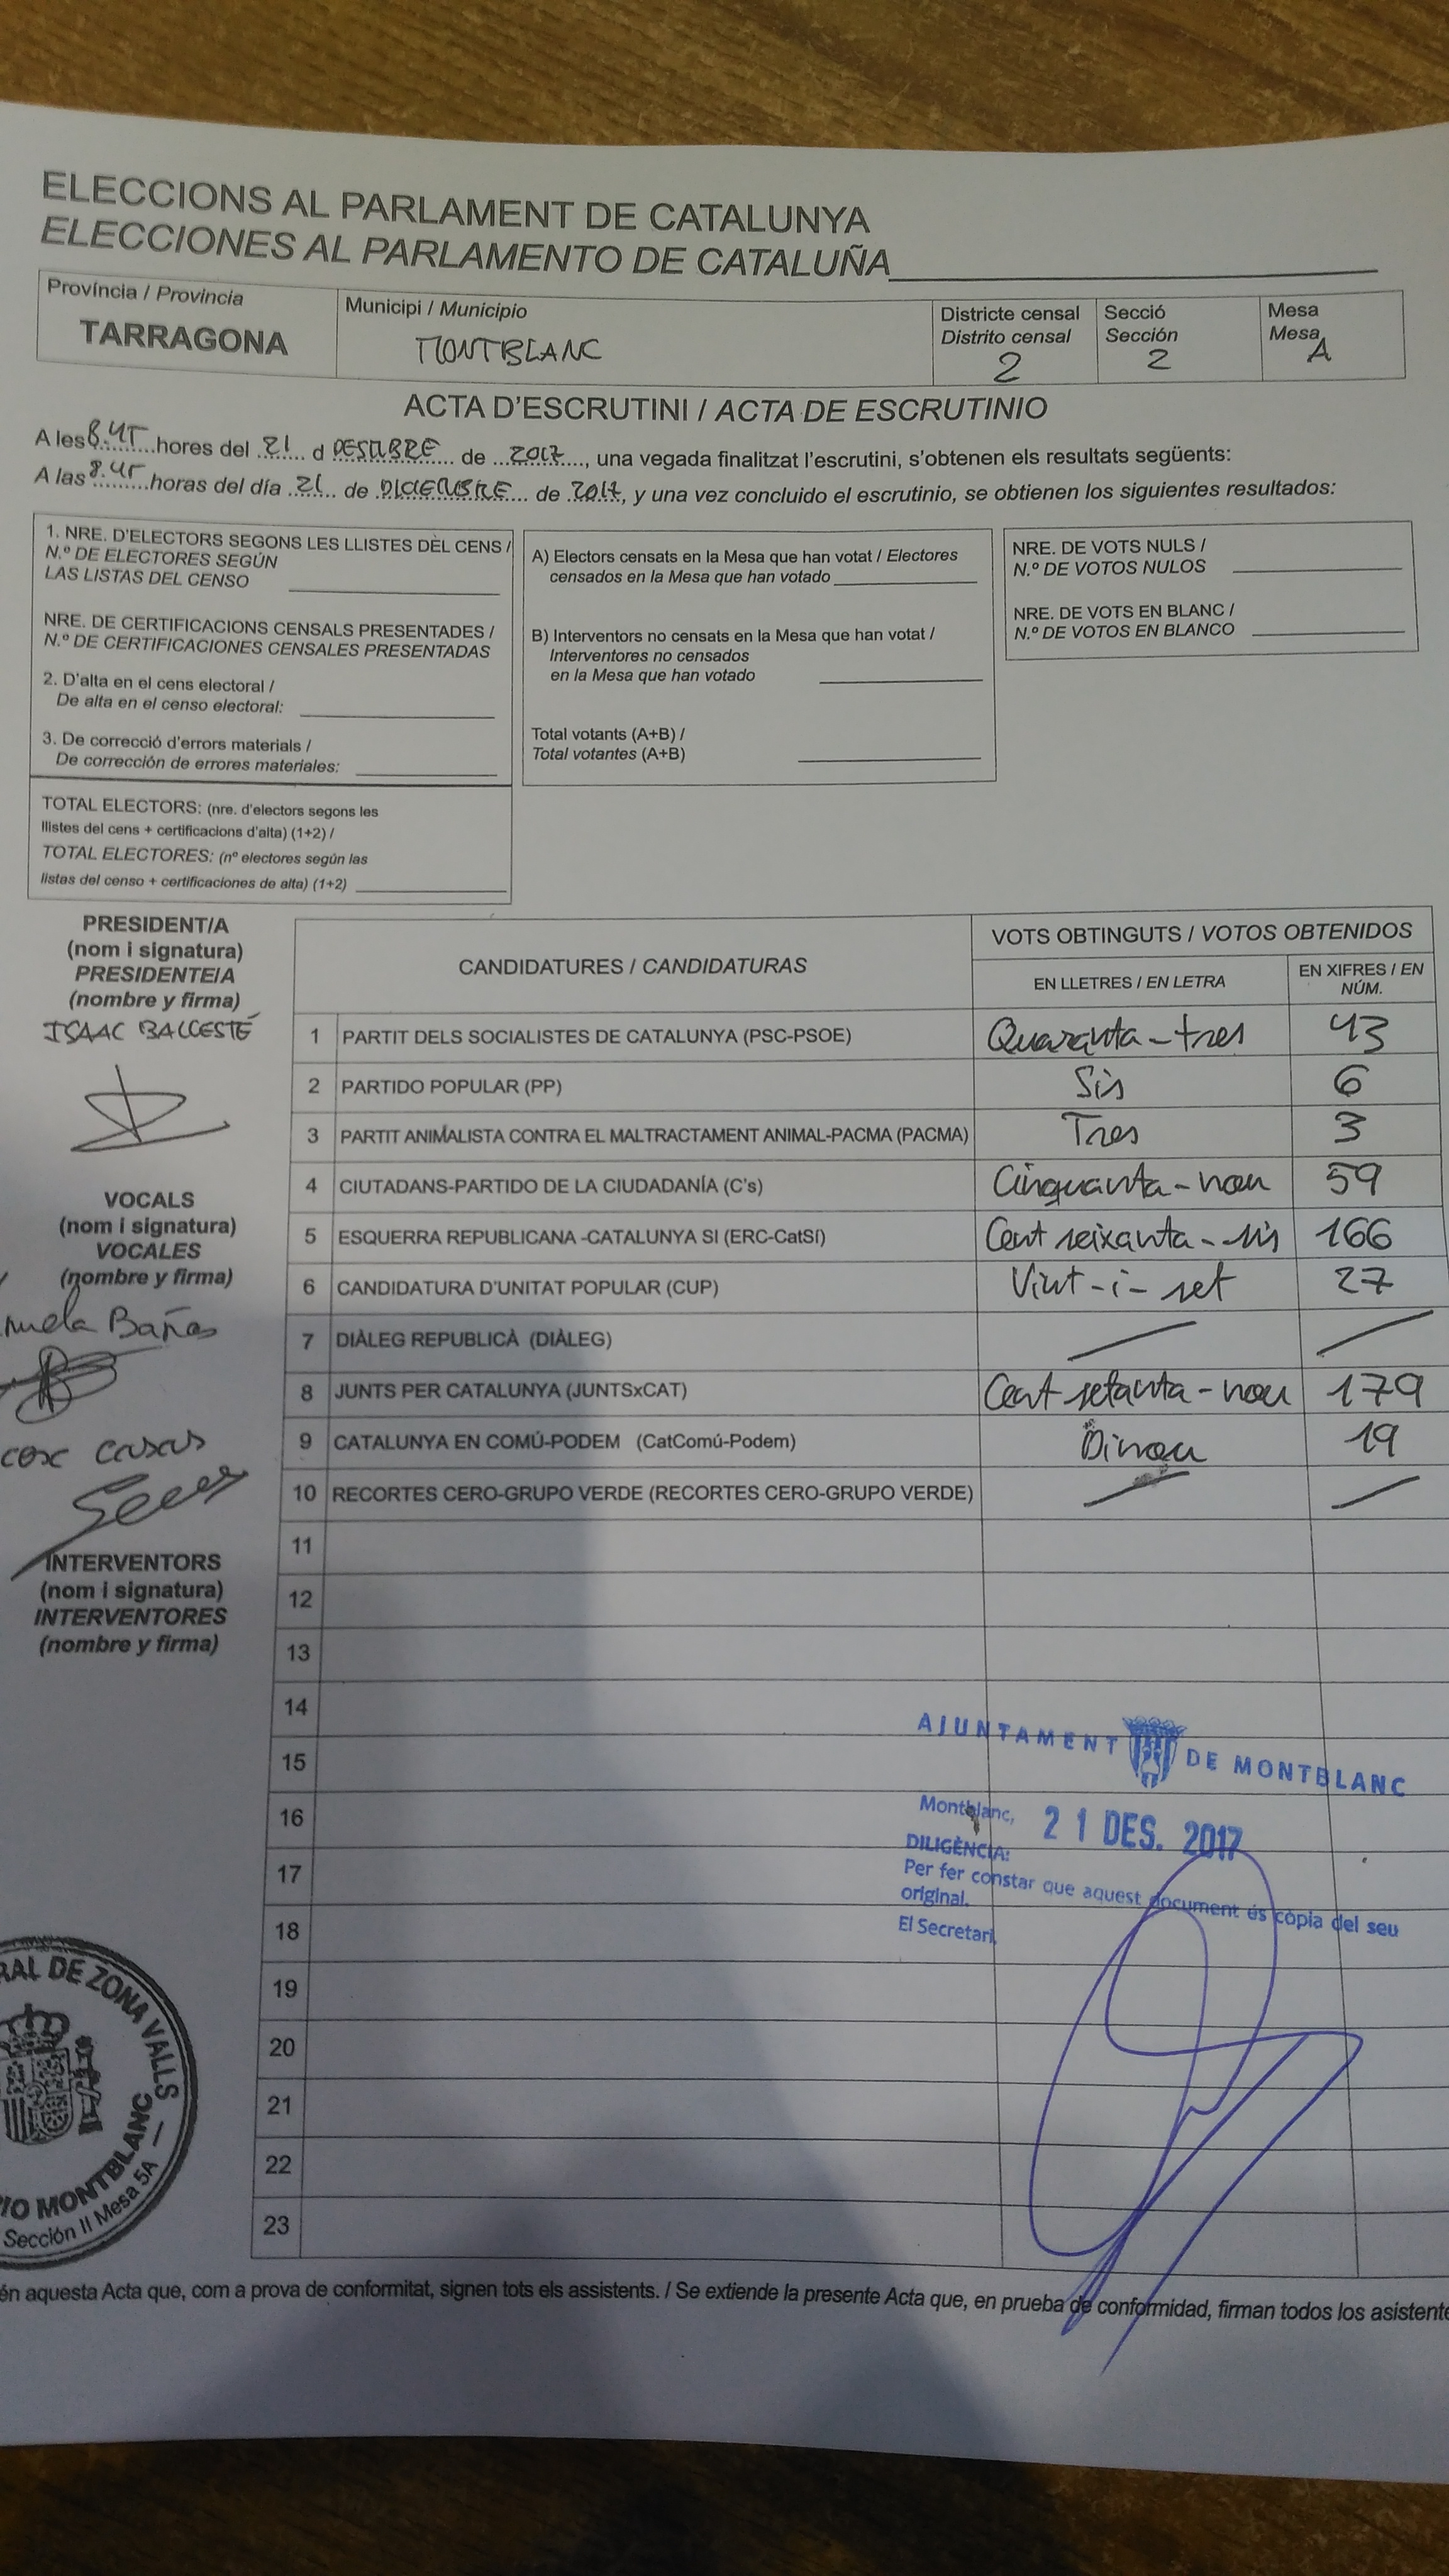 ELECCIONS AL PARLAMENT DE CATALUNYA
ELECCIONES AL PARLAMENTO DE CATALUÑA
Província / Provincia
TARRAGONA
Municipi / Municipio
MONTBLANC
Districte censal
Distrito censal
2
Secció
Sección
2
Mesa
Mesa
A
ACTA D'ESCRUTINI / ACTA DE ESCRUTINIO
A les 8.45 hores del 21 d DESEMBRE de 2017, una vegada finalitzat l'escrutini, s'obtenen els resultats següents:
A las 8.45 horas del día 21 de DICIEMBRE de 2017, y una vez concluido el escrutinio, se obtienen los siguientes resultados:
1. NRE. D'ELECTORS SEGONS LES LLISTES DEL CENS /
N.º DE ELECTORES SEGÚN
LAS LISTAS DEL CENSO
NRE. DE CERTIFICACIONS CENSALS PRESENTADES /
N.º DE CERTIFICACIONES CENSALES PRESENTADAS
2. D'alta en el cens electoral /
De alta en el censo electoral:
3. De correcció d'errors materials /
De corrección de errores materiales:
TOTAL ELECTORS: (nre. d'electors segons les
llistes del cens + certificacions d'alta) (1+2) /
TOTAL ELECTORES: (nº electores según las
listas del censo + certificaciones de alta) (1+2)
A) Electors censats en la Mesa que han votat / Electores
censados en la Mesa que han votado
B) Interventors no censats en la Mesa que han votat /
Interventores no censados
en la Mesa que han votado
Total votants (A+B) /
Total votantes (A+B)
NRE. DE VOTS NULS /
N.º DE VOTOS NULOS
NRE. DE VOTS EN BLANC /
N.º DE VOTOS EN BLANCO
PRESIDENT/A
(nom i signatura)
PRESIDENTE/A
(nombre y firma)
ISAAC BALLESTÉ
VOCALS
(nom i signatura)
VOCALES
(nombre y firma)
Baños
casas
INTERVENTORS
(nom i signatura)
INTERVENTORES
(nombre y firma)
CANDIDATURES / CANDIDATURAS
VOTS OBTINGUTS / VOTOS OBTENIDOS
EN LLETRES / EN LETRA
EN XIFRES / EN NÚM.
1 PARTIT DELS SOCIALISTES DE CATALUNYA (PSC-PSOE) Quaranta-tres 43
2 PARTIDO POPULAR (PP) Sis 6
3 PARTIT ANIMALISTA CONTRA EL MALTRACTAMENT ANIMAL-PACMA (PACMA) Tres 3
4 CIUTADANS-PARTIDO DE LA CIUDADANÍA (C's) Cinquanta-nou 59
5 ESQUERRA REPUBLICANA -CATALUNYA SI (ERC-CatSí) Cent seixanta-sis 166
6 CANDIDATURA D'UNITAT POPULAR (CUP) Vint-i-set 27
7 DIÀLEG REPUBLICÀ (DIÀLEG)
8 JUNTS PER CATALUNYA (JUNTSxCAT) Cent setanta-nou 179
9 CATALUNYA EN COMÚ-PODEM (CatComú-Podem) Dinou 19
10 RECORTES CERO-GRUPO VERDE (RECORTES CERO-GRUPO VERDE)
11
12
13
14
15
16
17
18
19
20
21
22
23
AJUNTAMENT DE MONTBLANC
Montblanc, 21 DES. 2017
DILIGÈNCIA:
Per fer constar que aquest document és còpia del seu
original.
El Secretari,
RAL DE ZONA VALLS
IO MONTBLANC
Sección II Mesa 5A
én aquesta Acta que, com a prova de conformitat, signen tots els assistents. / Se extiende la presente Acta que, en prueba de conformidad, firman todos los asistente